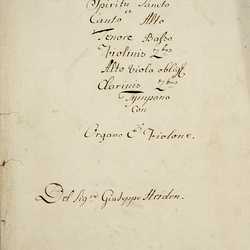 Spiritu Sancto
a
Canto Alto
Tenore Basso
Violinis 2bus
Alto Viola oblig
Clarinis 2bus
Tympano
Con
Organo e Violone.
Del Sigre Giuseppe Heiden.